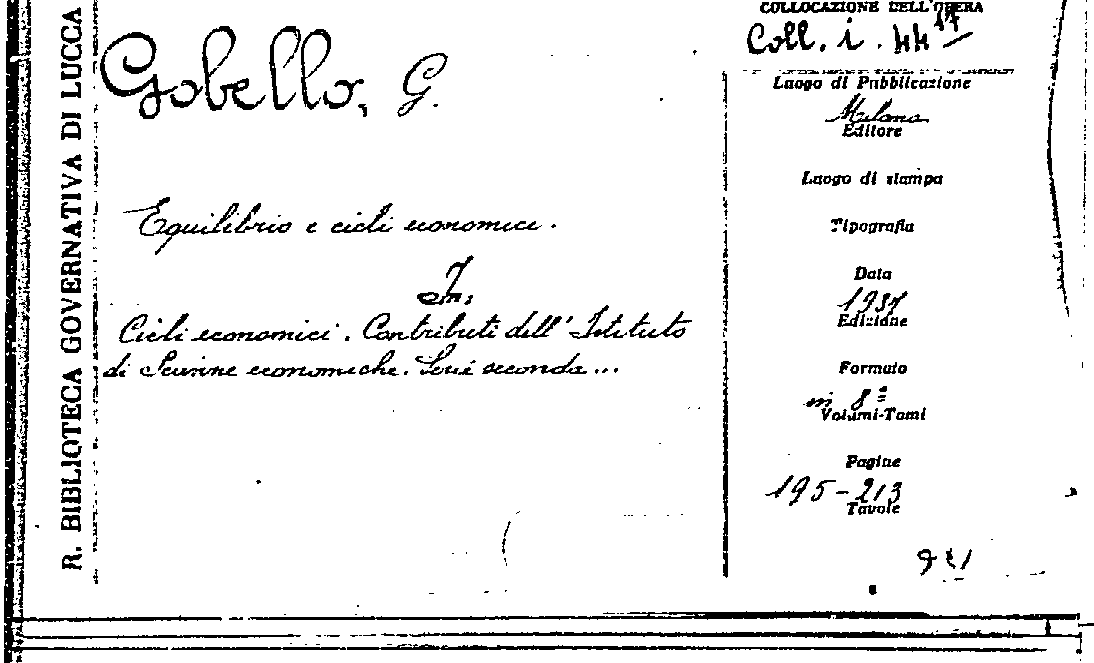 R. BIBLIOTECA GOVERNATIVA DI LUCCA
Gobello, G.
Equilibrio e cicli economici.
In:
Cicli economici. Contributi dell'Istituto
di Scienze economiche. Serie seconda...
COLLOCAZIONE DELL'OPERA
Coll. i. 44 17
Luogo di Pubblicazione
Milano
Editore
Luogo di stampa
Tipografia
Data
1937
Edizione
Formato
in 8º
Volumi-Tomi
Pagine
195-213
Tavole